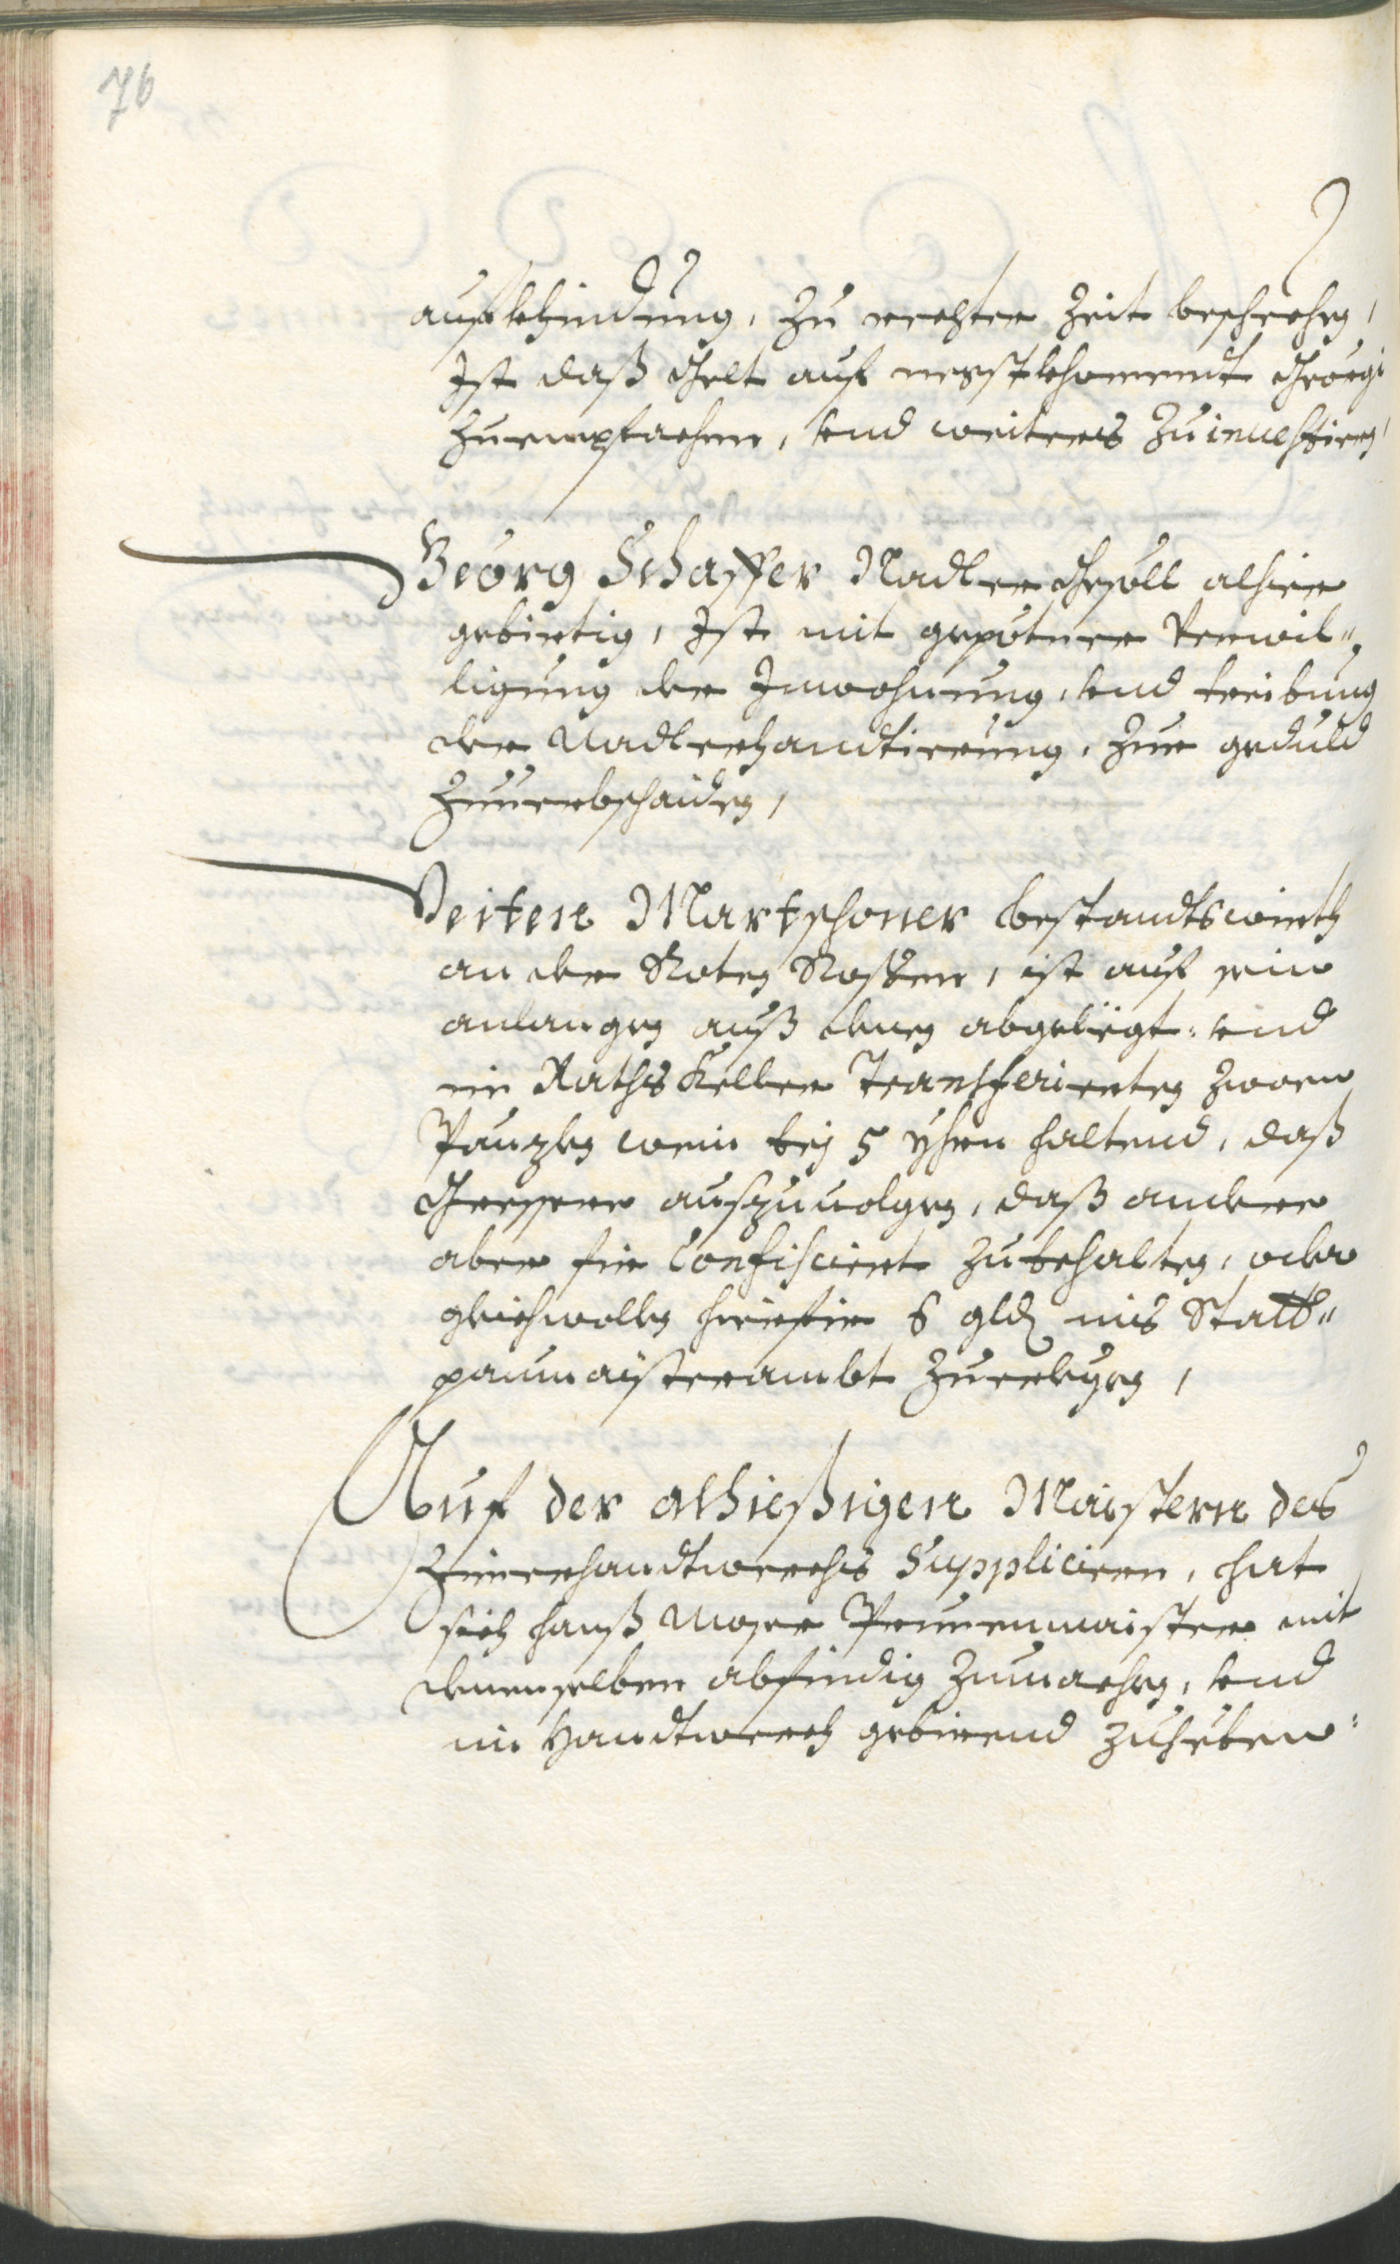 76
aufkhindung, zu rechter Zeit beschechen,
Ist daß Gelt auf negstkhomment Georgi
zuempfachen, und weiters zuinuestiern,
Georg Schaffer Nadler Gesöll alhier
gebirtig, Ist mit gepotner Verwil„
ligung der Inwohnung, und treibung
der Nadlerhandtierung, zur geduld
zuuerbschaiden,
Veiten Martschoner bestandtswirth
an der Roten Rosen, ist auf sein
anlangen auß denen abgelegt. und
in Rathskeller Transferierten zween
Pänzlen wein bey 5 yhrn haltend, daß
Gressere außzuuolgen, daß andere
aber für Confisciert zubehalten, oder
gleichwollen hierfür 6 gld ins Statt„
paumaisterambt zuerlegen,
Auf der alhießigen Maistern des
handtwerchs Supplicirn, hat
sich hanß Moser Prunenmaister mit
denenselben abfindig zumachen, und
im Handtwerch gebirend zuheben.